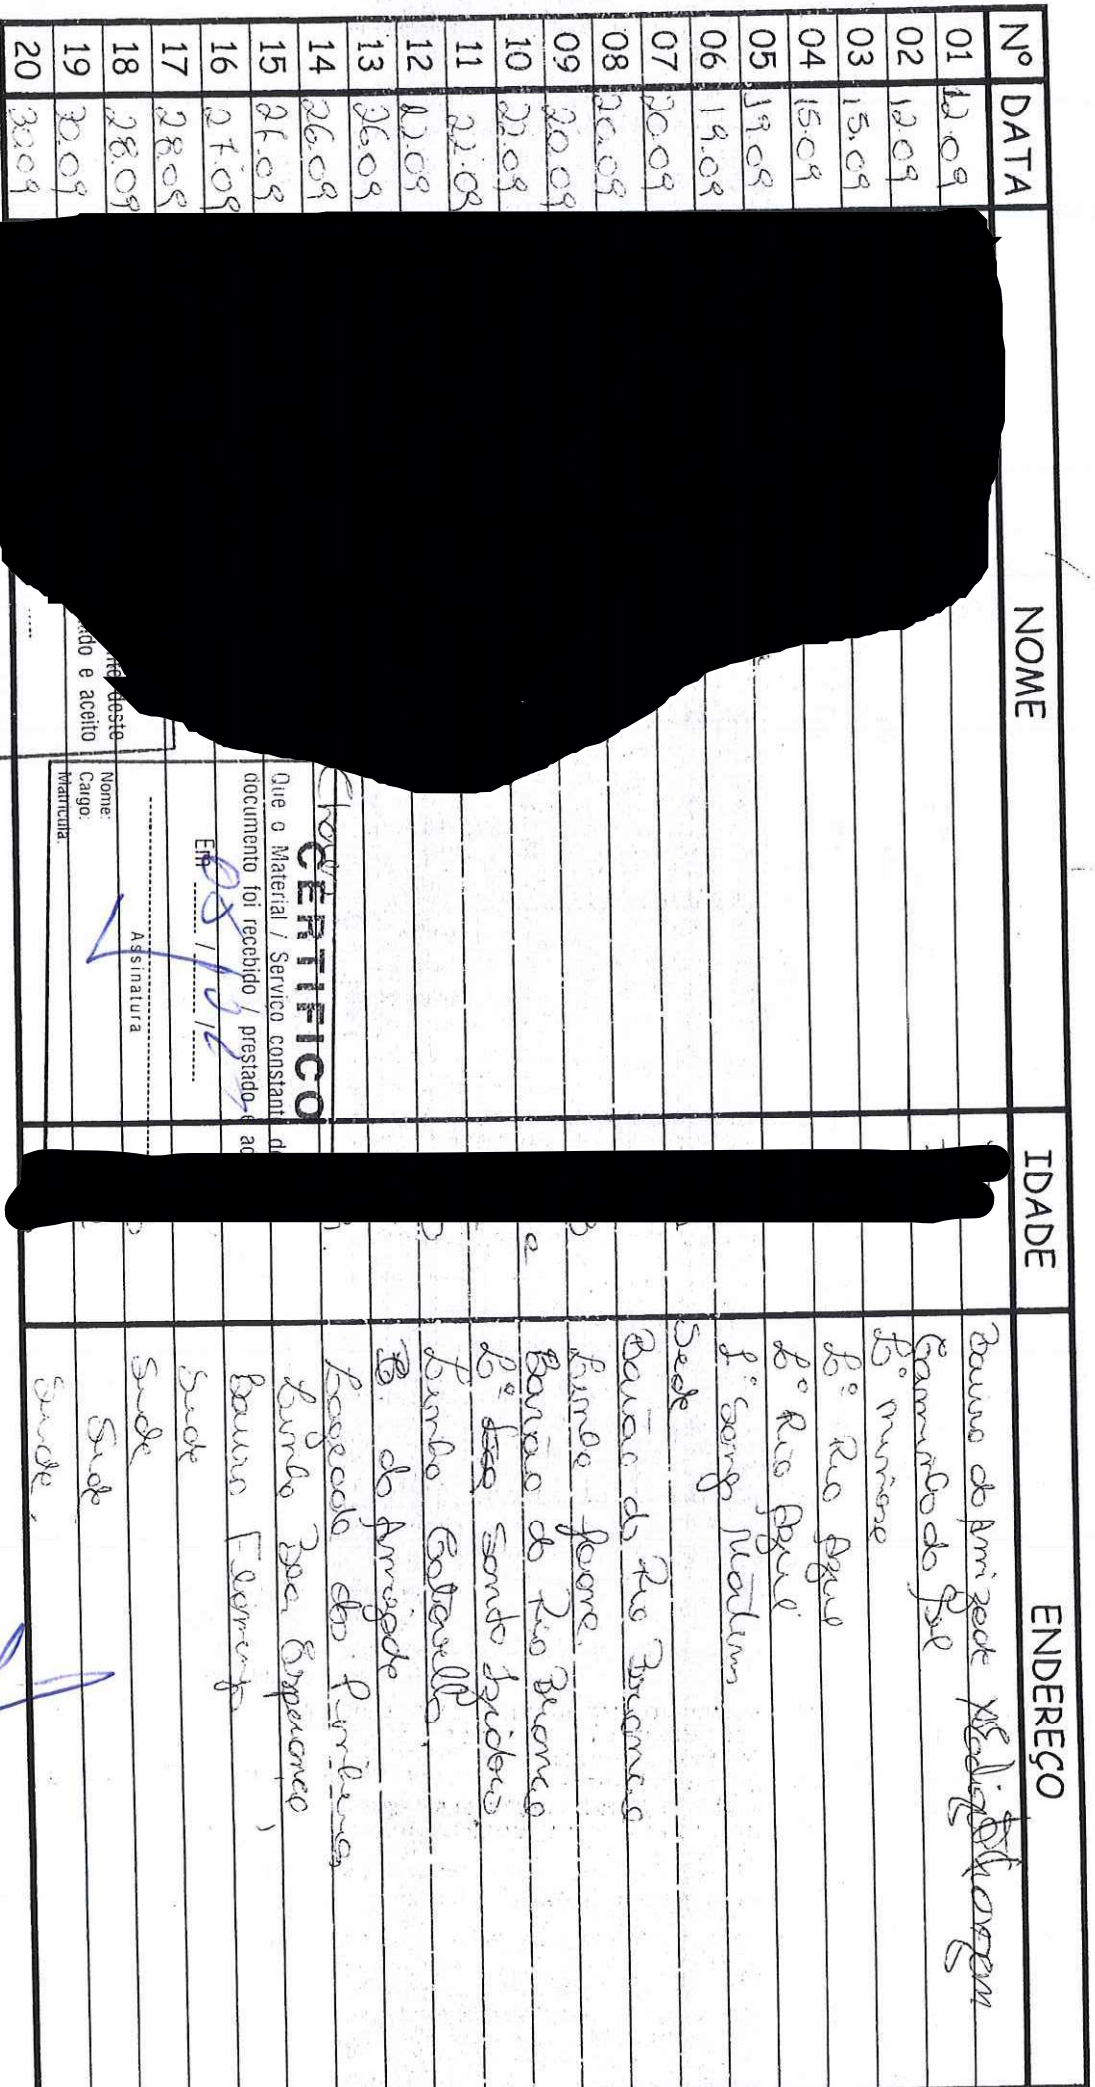 Nº DATA NOME IDADE ENDEREÇO
01 12.09 Bairro da Amizade
02 12.09 Caminho do Sol
03 15.09 Lº Mimosa
04 15.09 Lº Rio Azul
05 19.09 Lº Rio Azul
06 19.09 Lº Martins
07 20.09 Sede
08 20.09 Barão do Rio Branco
09 20.09 Linha
10 22.09 Barão do Rio Branco
11 22.09 Lº Santo Izidoro
12 22.09 Linha
13 26.09 B. da Amizade
14 26.09 Lageado do
15 26.09 Linha Boa Esperança
16 27.09 Bairro Flamengo
17 28.09 Sede
18 28.09 Sede
19 30.09 Sede
20 30.09 Sede
deste
ado e aceito
CERTIFICO
Que o Material / Servico constant de
documento foi recebido / prestado e ac
Em / /
Assinatura
Nome:
Cargo:
Matrícula: